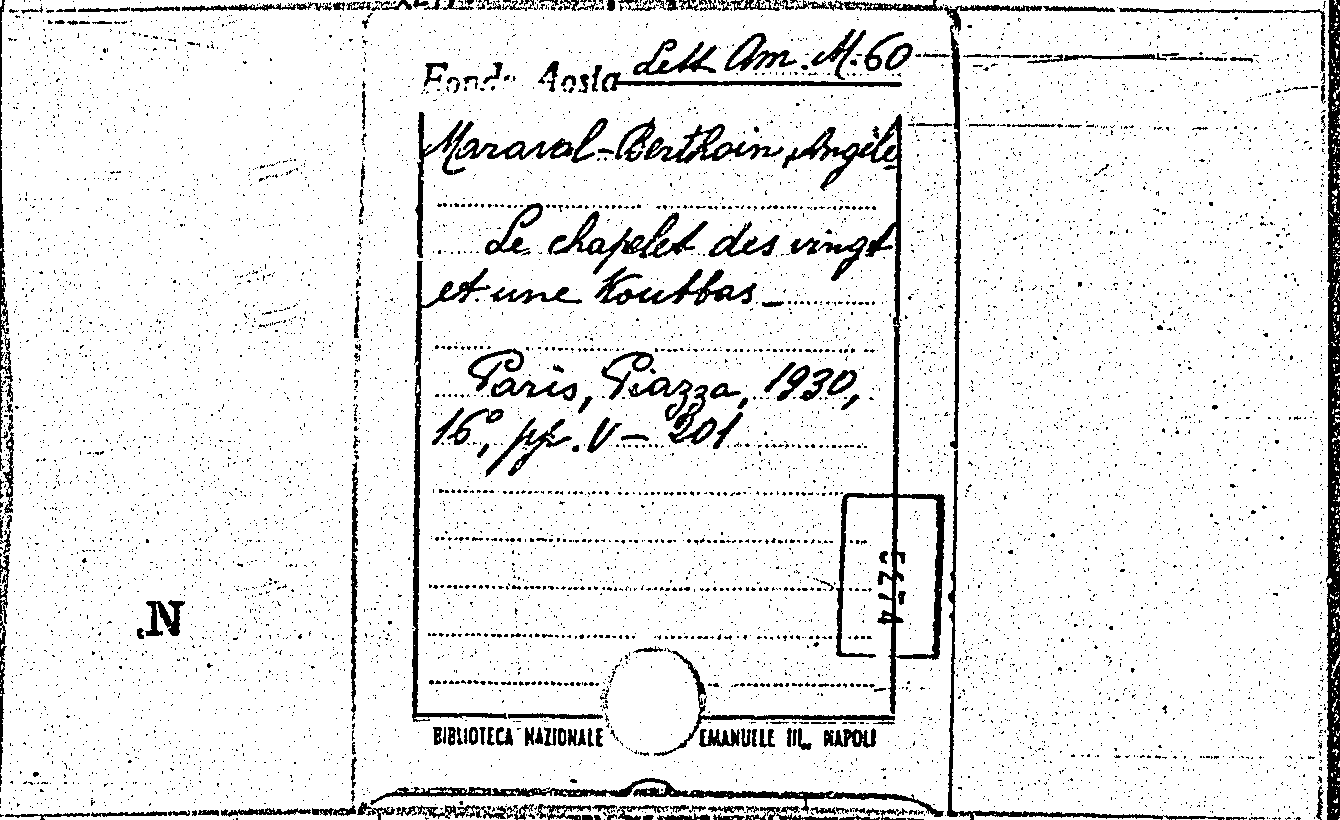 Fondo Aosta Lett. Am. M. 60
Maraval-Berthoin, Angèle
Le chapelet des vingt
et une Koubbas_
Paris, Piazza, 1930,
16°, pp. V - 201
N.
BIBLIOTECA NAZIONALE EMANUELE III„ NAPOLI